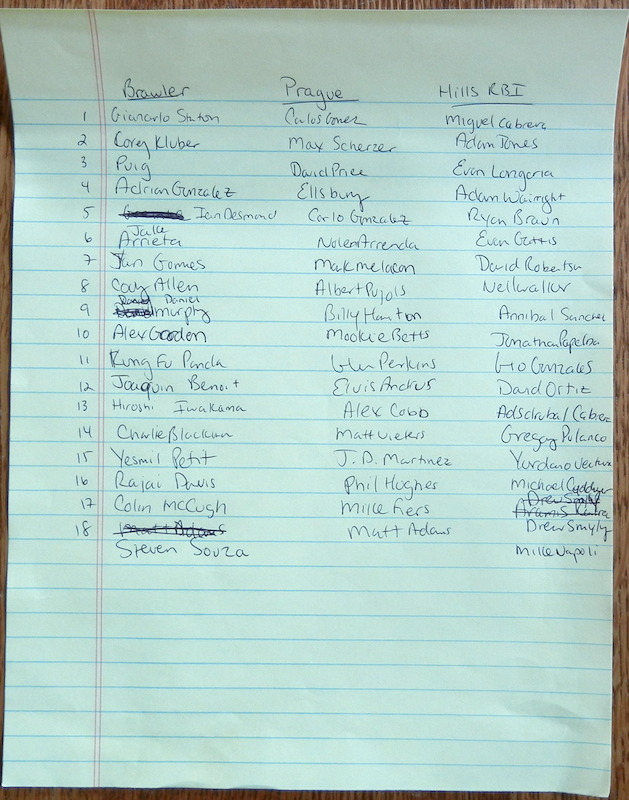 Brawler Prague Hills RBI
1 Giancarlo Stanton Carlos Gomez Miguel Cabrera
2 Corey Kluber Max Scherzer Adam Jones
3 Puig David Price Evan Longoria
4 Adrian Gonzalez Ellsbury Adam Wainright
5 Ian Desmond Carlo Gonzalez Ryan Braun
6 Jake Arrieta Nolen Arrenda Evan Gattis
7 Yan Gomes Mark melacon David Robertsn
8 Cody Allen Albert Pujols Neil walker
9 Daniel murphy Billy Hamilton Annibal Sanchez
10 Alex Gordon Mookie Betts Jonathan Papelbo
11 Kung Fu Panda Glen Perkins Gio Gonzales
12 Joaquin Benoit Elvis Andrus David Ortiz
13 Hiroshi Iwakama Alex Cobb Adsdrubal Cabera
14 Charlie Blackmn Matt wieters Gregory Polanco
15 Yesmil Petit J.D. Martinez Yordano Ventura
16 Rajai Davis Phil Hughes Michael Cuddyer
17 Colin McCugh Mike Fiers Drew Smyly
18 Matt Adams Matt Adams Drew Smyly
Steven Souza Mike Napoli